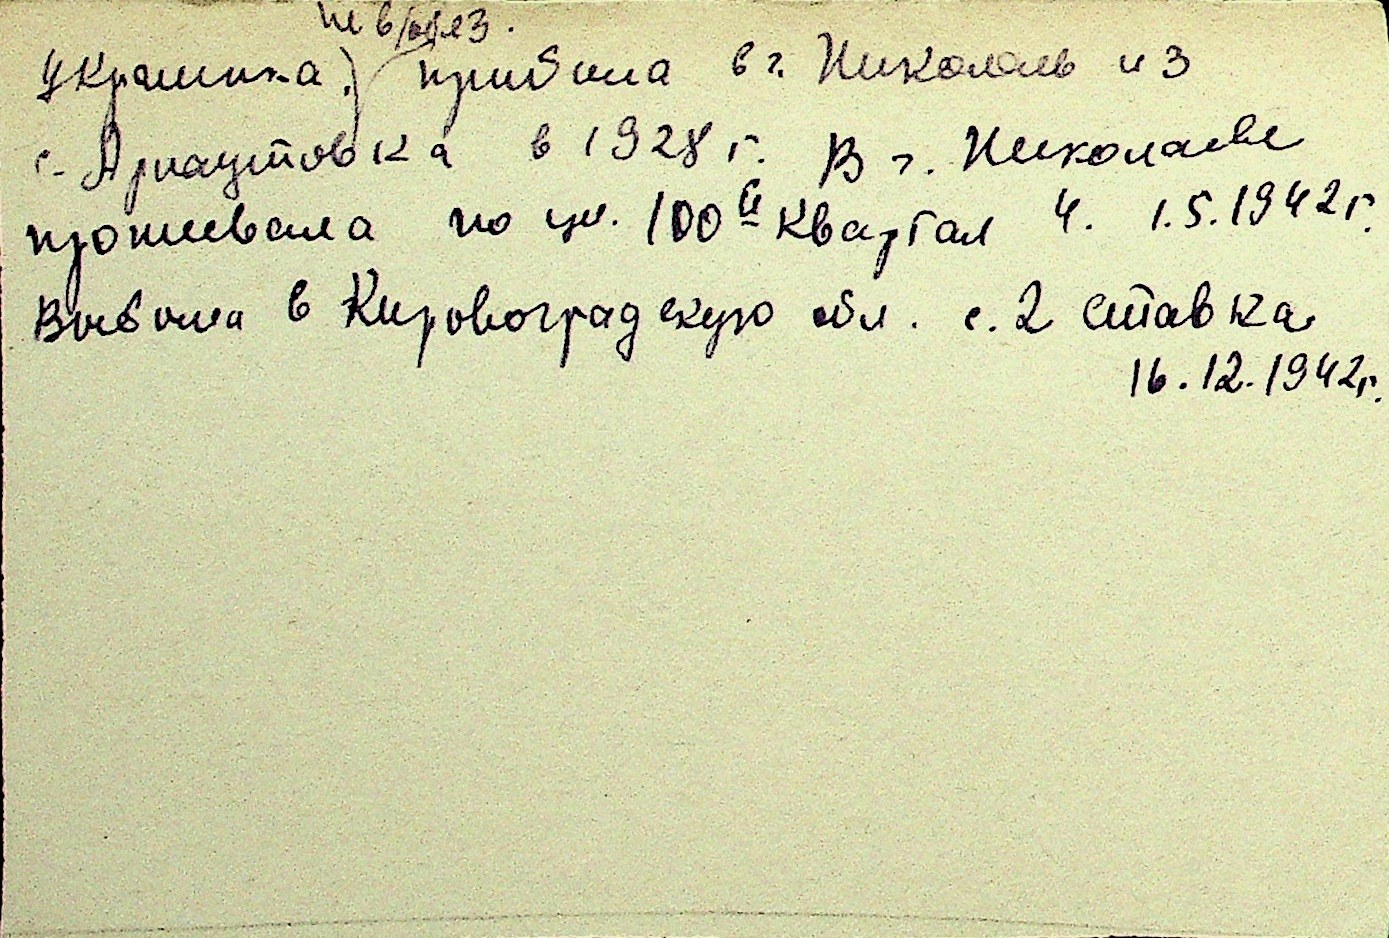 украинка. прибыла в г. Николаев из
с. Арнаутовка в 1928 г. В г. Николаеве
проживала по ул. 100й квартал 4. 1.5.1942 г.
Выбыла в Кировоградскую обл. с. 2 Ставка
16.12.1942г.